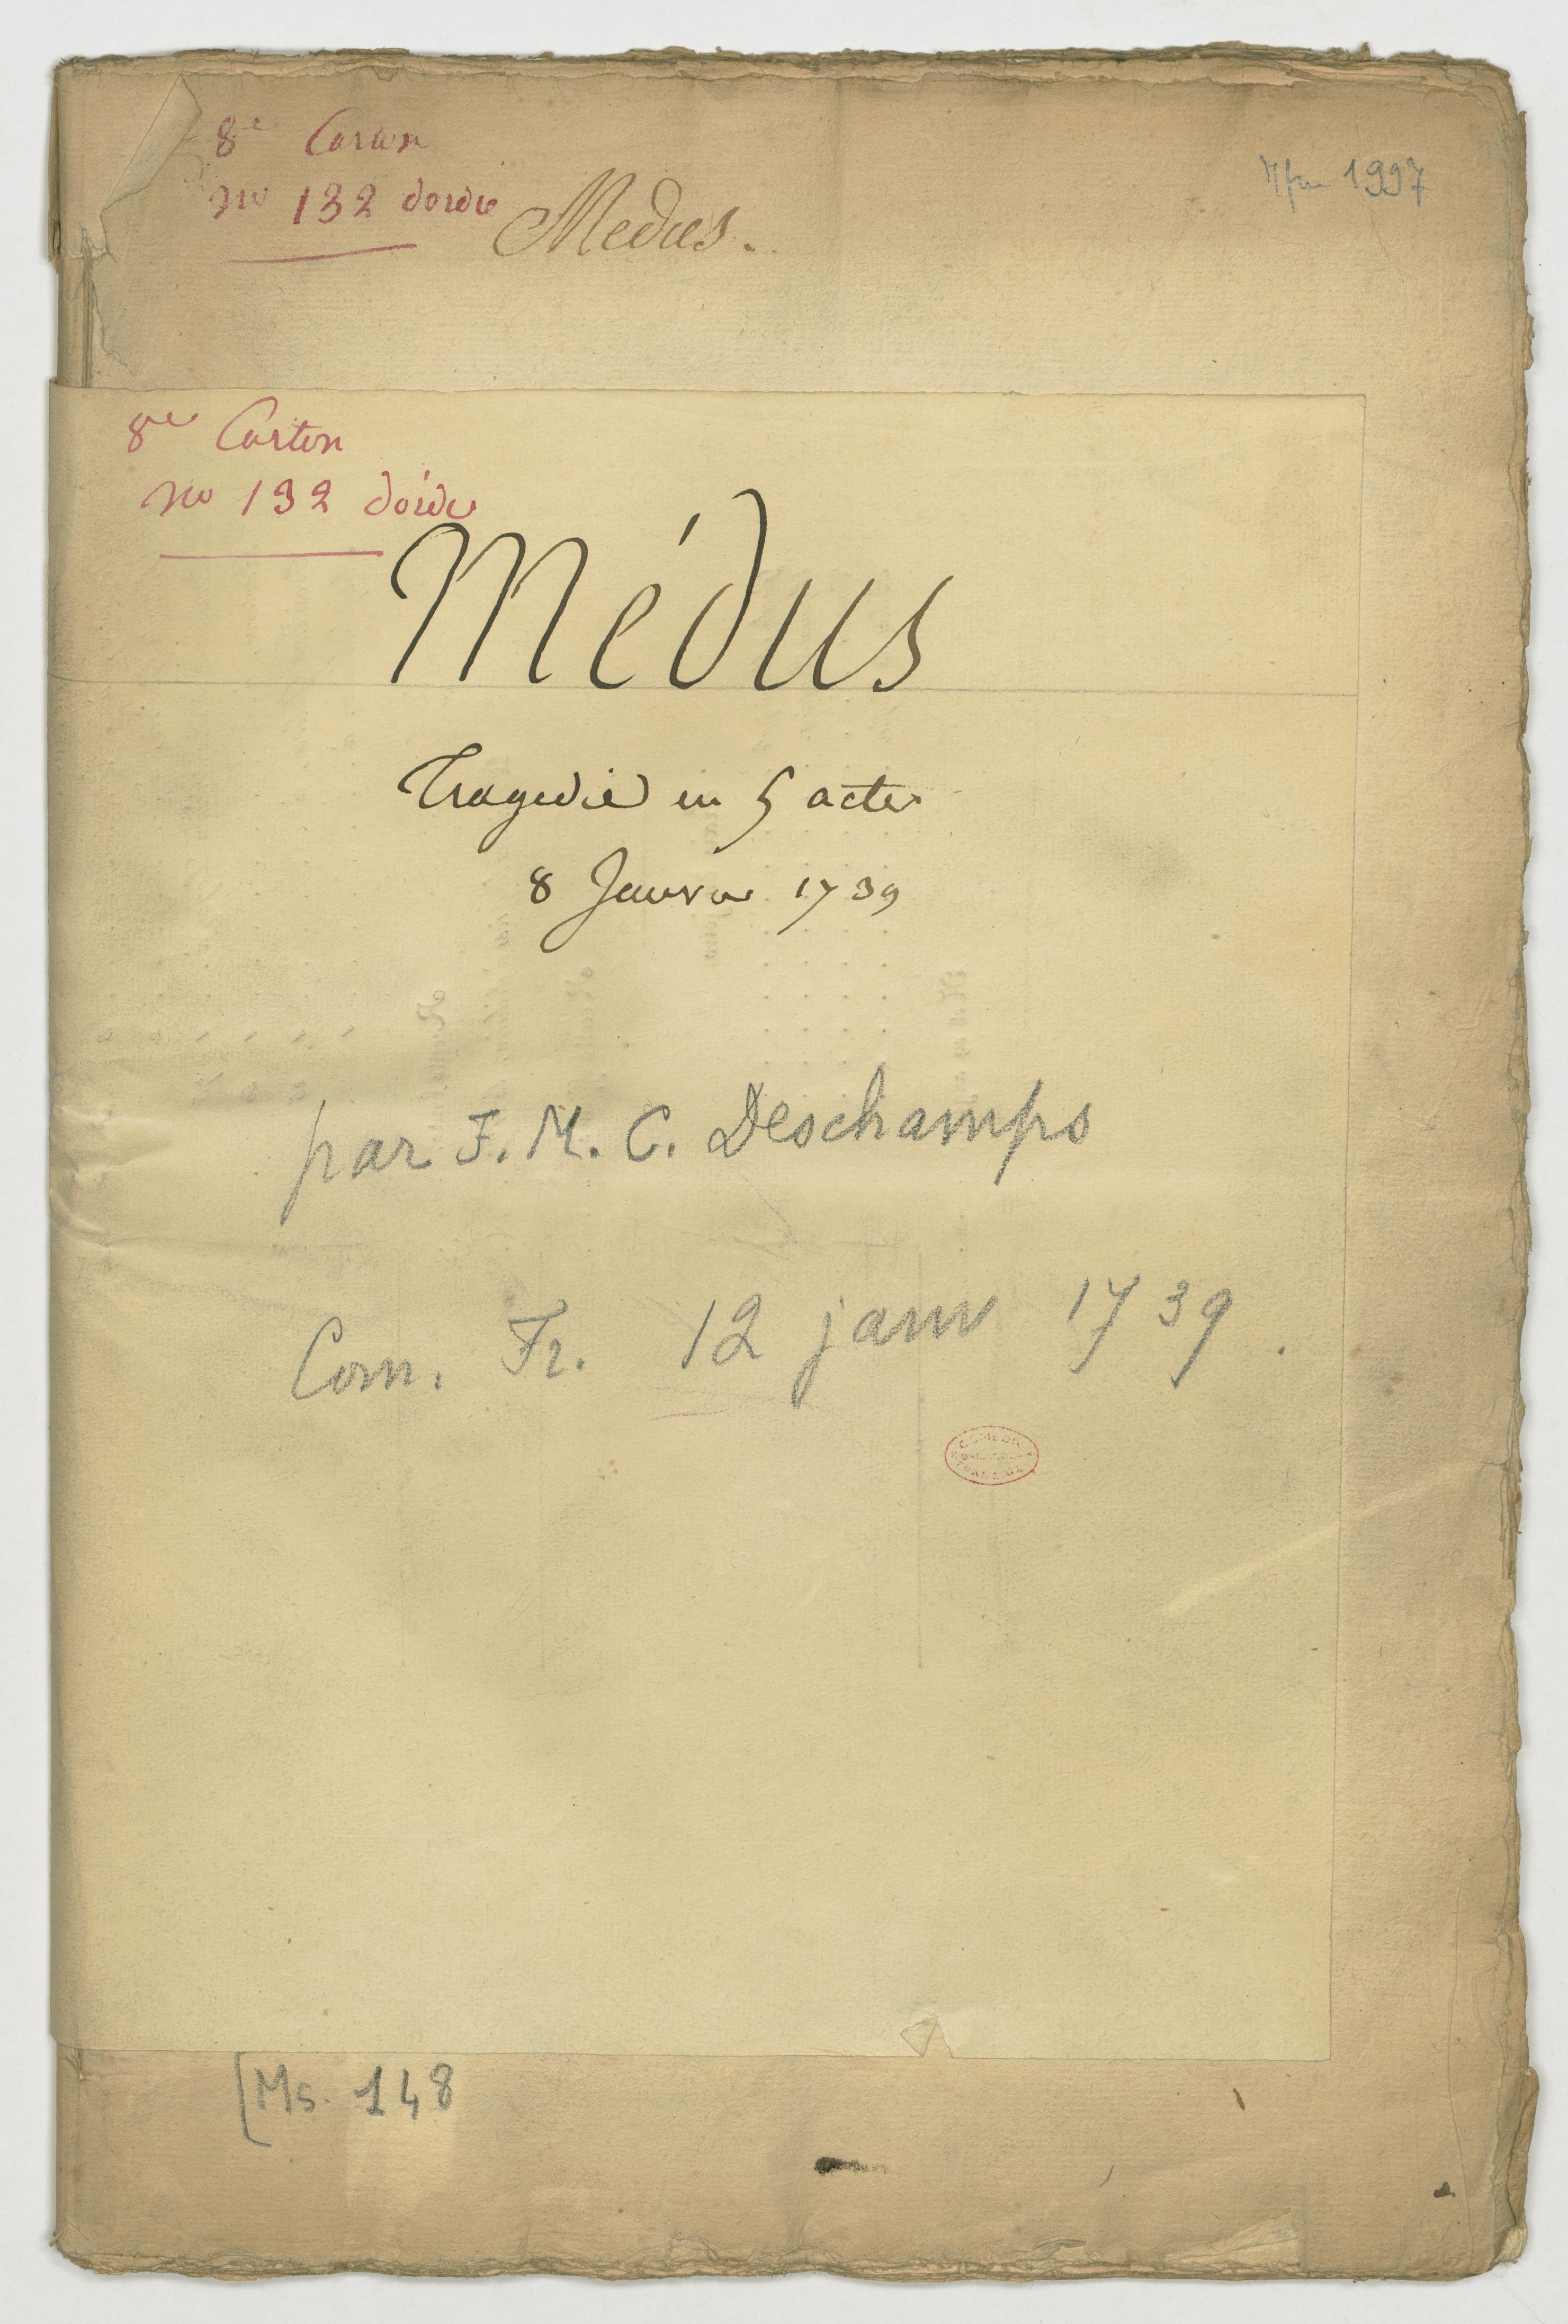 8e Carton
no 132 dordre
Medus.
1997
8e Carton
no 132 dordre
Médus
Tragedie en 5 actes
8 Janvier 1739
par F. M. C. Deschamps
Com. Fr. 12 janv 1739.
COMÉDIE
FRANÇAISE
[Ms. 148